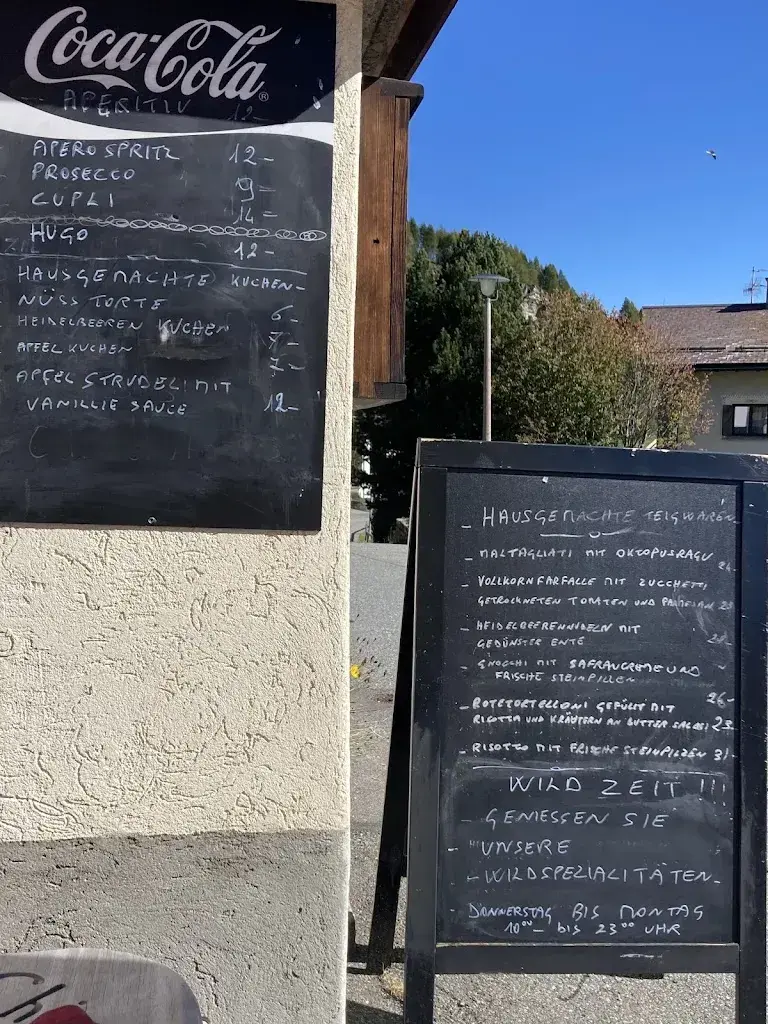 Coca-Cola
APERITIV 12-
APERO SPRITZ 12-
PROSECCO 9=
CÜPLI 14=
HUGO 12-
HAUSGEMACHTE KUCHEN-
NÜSS TORTE 6-
HEIDELBEEREN KUCHEN 7-
APFEL KUCHEN 7-
APFEL STRUDEL MIT
VANILLIE SAUCE 12-
- HAUSGEMACHTE TEIGWAREN
- MALTAGLIATI MIT OKTOPUSRAGU
24-
- VOLLKORNFARFALLE MIT ZUCCHETTI
GETROCKNETEN TOMATEN UND PARMESAN
- HEIDELBEERENNUDELN MIT
GEDÜNSTER ENTE
- GNOCCHI MIT SAFRANCREME UND
FRISCHE STEINPILZEN
26-
- ROTETORTELLONI GEFÜLLT MIT
RICOTTA UND KRÄUTERN AN BUTTER SALBEI 23-
- RISOTTO MIT FRISCHE STEINPILZEN 31-
WILD ZEIT !!!
- GENIESSEN SIE
- UNSERE
- WILDSPEZIALITÄTEN-
- DONNERSTAG BIS MONTAG
10⁰⁰- bis 23⁰⁰ UHR